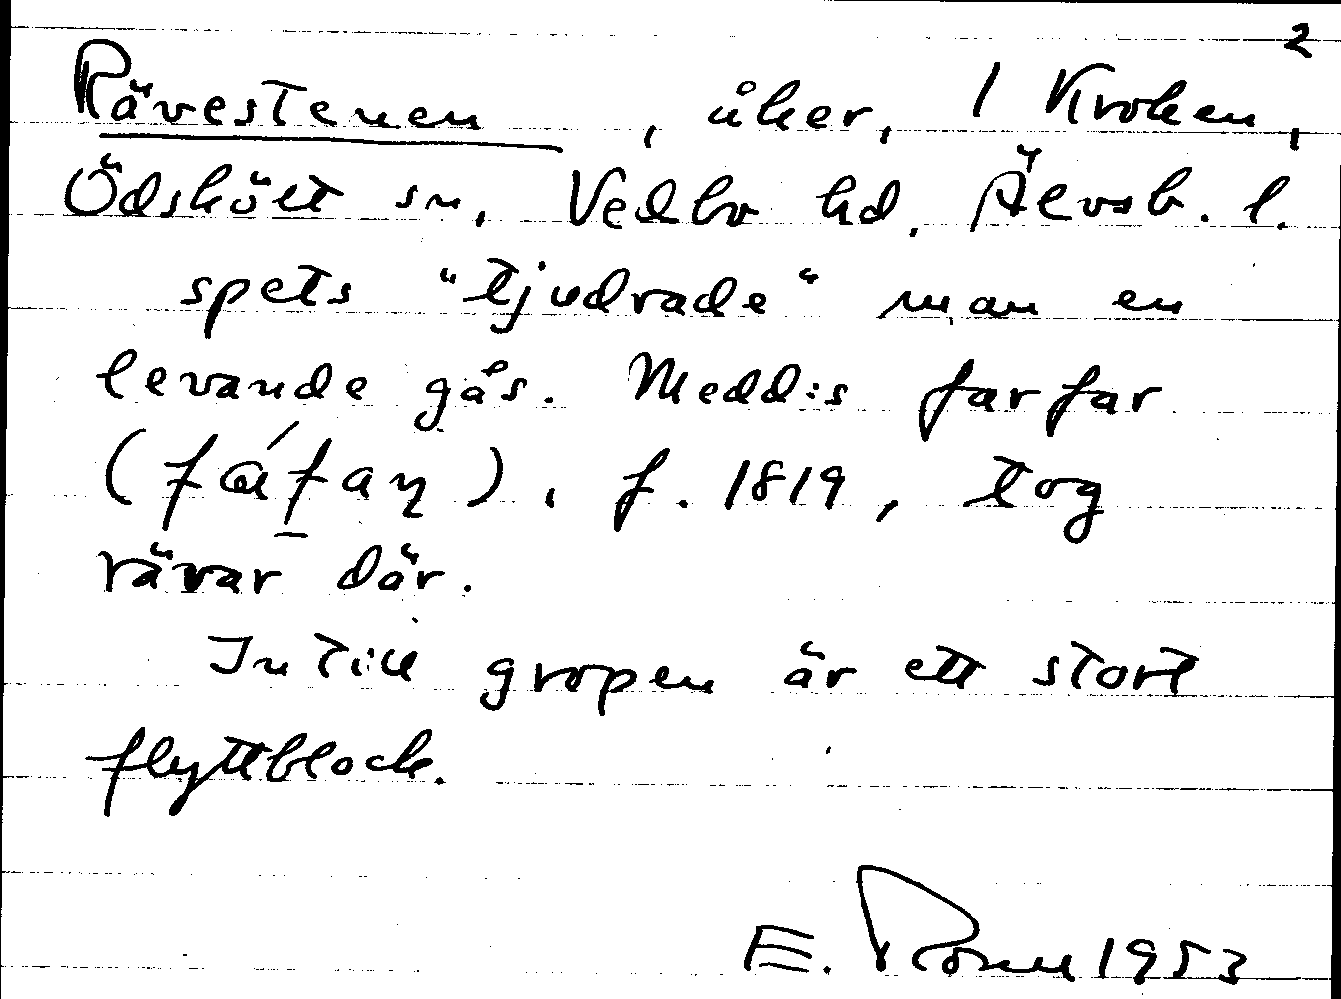 2
Rävestenen , åker, 1 Kroken,
Ödskölt sn, Vedbo hd. Älvsb. l.
spets "tjudrade" man en
levande gås. Medd:s farfar
(fáfaɳ), f. 1819, tog
rävar där.
Intill gropen är ett stort
flyttblock.
E. 1953